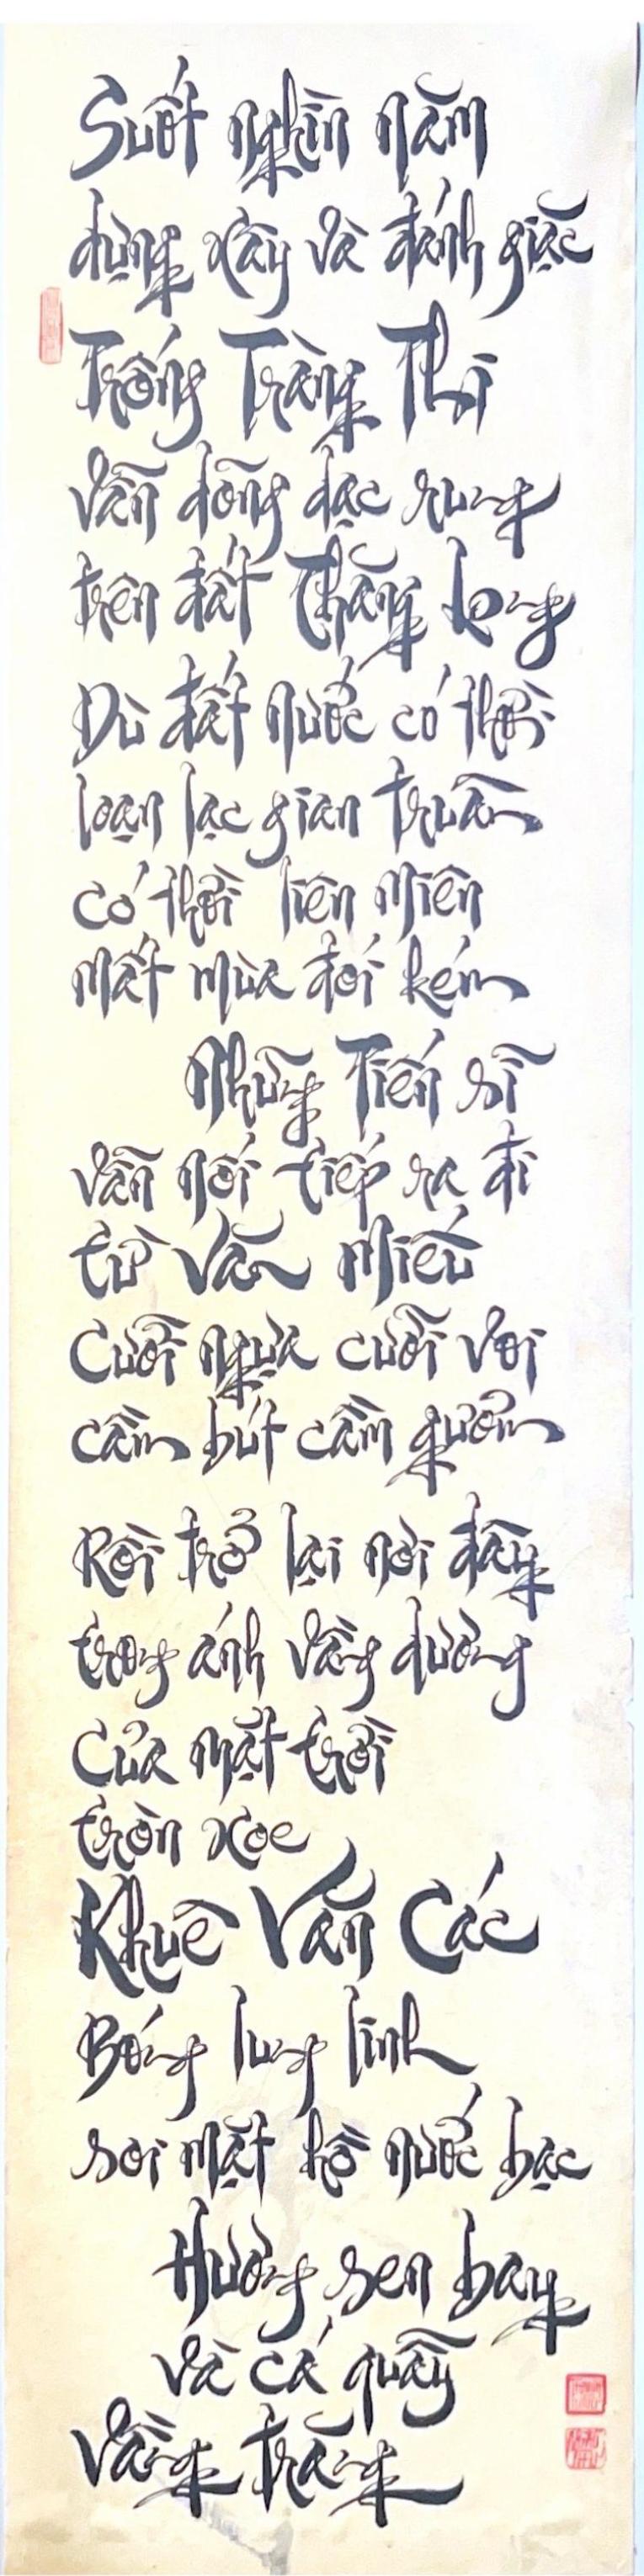 Suốt nghìn năm
dựng xây và đánh giặc
Trống Tràng Thi
vẫn dõng dạc rung
trên đất Thăng Long
Dù đất nước có thời
loạn lạc gian truân
có thời liên miên
mất mùa đói kém
Những Tiến sĩ
vẫn nối tiếp ra đi
từ Văn Miếu
Cưỡi ngựa cưỡi voi
cầm bút cầm gươm
Rồi trở lại nơi đây
trong ánh vầng dương
Của mặt trời
tròn xoe
Khuê Văn Các
Bóng lung linh
soi mặt hồ nước bạc
Hương sen bay
và cá quẫy
Vầng trăng